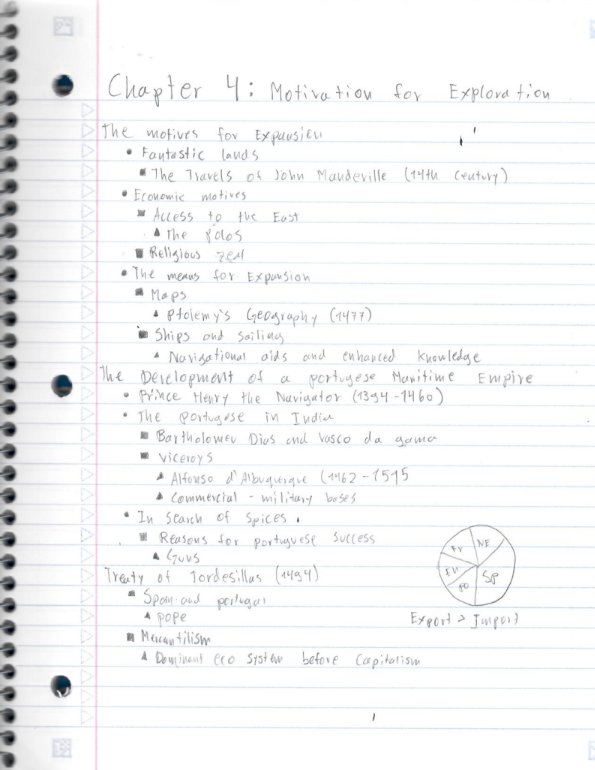 Chapter 4: Motivation for Exploration
The motives for Expansion
• Fantastic lands
■ The Travels of John Mandeville (14th Century)
• Economic motives
■ Access to the East
▲ The Polos
■ Religious zeal
• The means for Expansion
■ Maps
▲ Ptolemy's Geography (1477)
■ Ships and Sailing
▲ Navigational aids and enhanced knowledge
The Development of a portugese Maritime Empire
• Prince Henry the Navigator (1394-1460)
• The portugese in India
■ Bartholomeu Dias and Vasco da gama
■ Viceroys
▲ Alfonso d'Albuquerque (1462-1515
▲ Commercial - military bases
• In Search of Spices.
■ Reasons for portuguese Success
▲ Guns
Treaty of Tordesillas (1494)
■ Spain and portugal
▲ pope
■ Mercantilism
▲ Dominant eco system before Capitalism
Fr
NE
EN
PO
SP
Export > Import
1